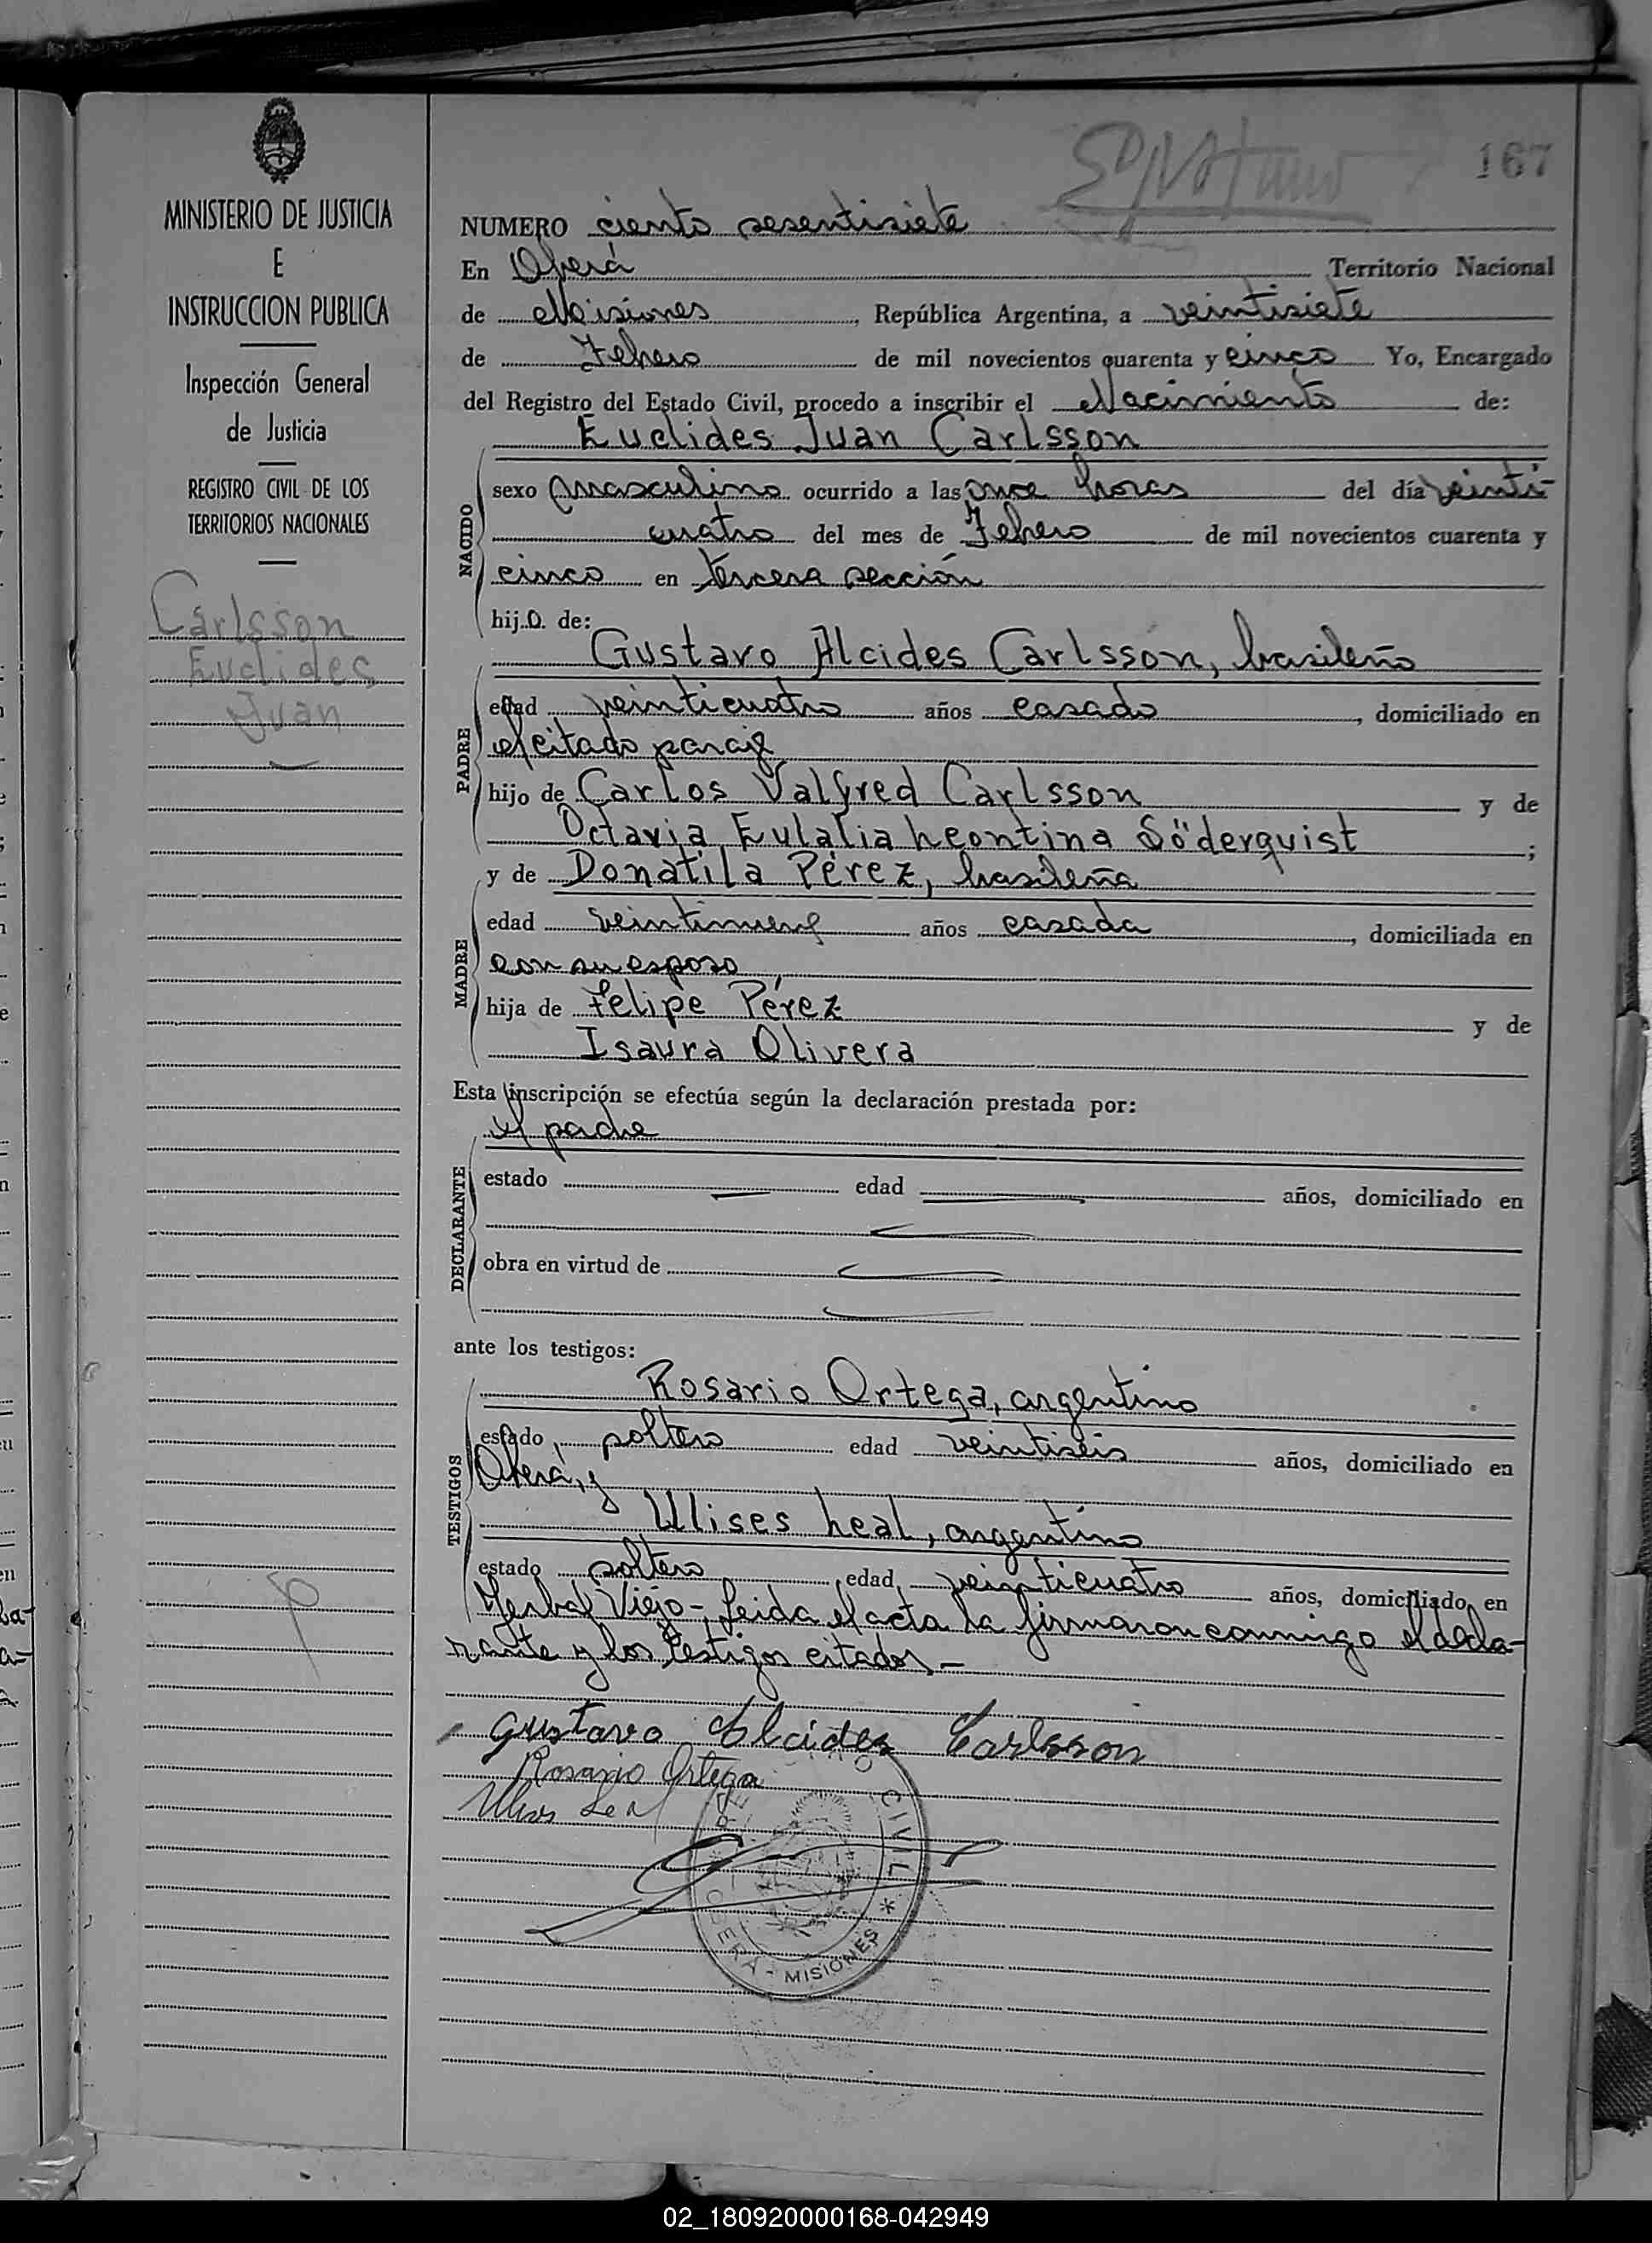 167
MINISTERIO DE JUSTICIA
E
INSTRUCCION PUBLICA
Inspección General
de Justicia
REGISTRO CIVIL DE LOS
TERRITORIOS NACIONALES
Carlsson
Euclides
Juan
NUMERO ciento sesentisiete
En Oberá Territorio Nacional
de Misiones, República Argentina, a veintisiete
de Febrero de mil novecientos cuarenta y cinco Yo, Encargado
del Registro del Estado Civil, procedo a inscribir el Nacimiento de:
Euclides Juan Carlsson
NACIDO
sexo masculino ocurrido a las once horas del día veinti-
cuatro del mes de Febrero de mil novecientos cuarenta y
cinco en tercera sección
hij.o. de:
Gustavo Alcides Carlsson, brasileño
PADRE
edad veinticuatro años casado, domiciliado en
el citado paraje
hijo de Carlos Valfred Carlsson y de
Octavia Eulalia Leontina Söderquist;
y de Donatila Pérez, brasileña
MADRE
edad veintinueve años casada, domiciliada en
con su esposo,
hija de Felipe Pérez y de
Isaura Olivera
Esta inscripción se efectúa según la declaración prestada por:
el padre
DECLARANTE
estado edad años, domiciliado en
obra en virtud de
ante los testigos:
Rosario Ortega, argentino
TESTIGOS
estado soltero edad veintiseis años, domiciliado en
Oberá, y
Ulises Leal, argentino
estado soltero edad veinticuatro años, domiciliado en
Yerbal Viejo-, Leida el acta la firmaron conmigo el decla-
rante y los testigos citados.-
Gustavo Alcides Carlsson
Rosario Ortega
Ulises Leal
CIVIL * OBERÁ - MISIONES
02_180920000168-042949